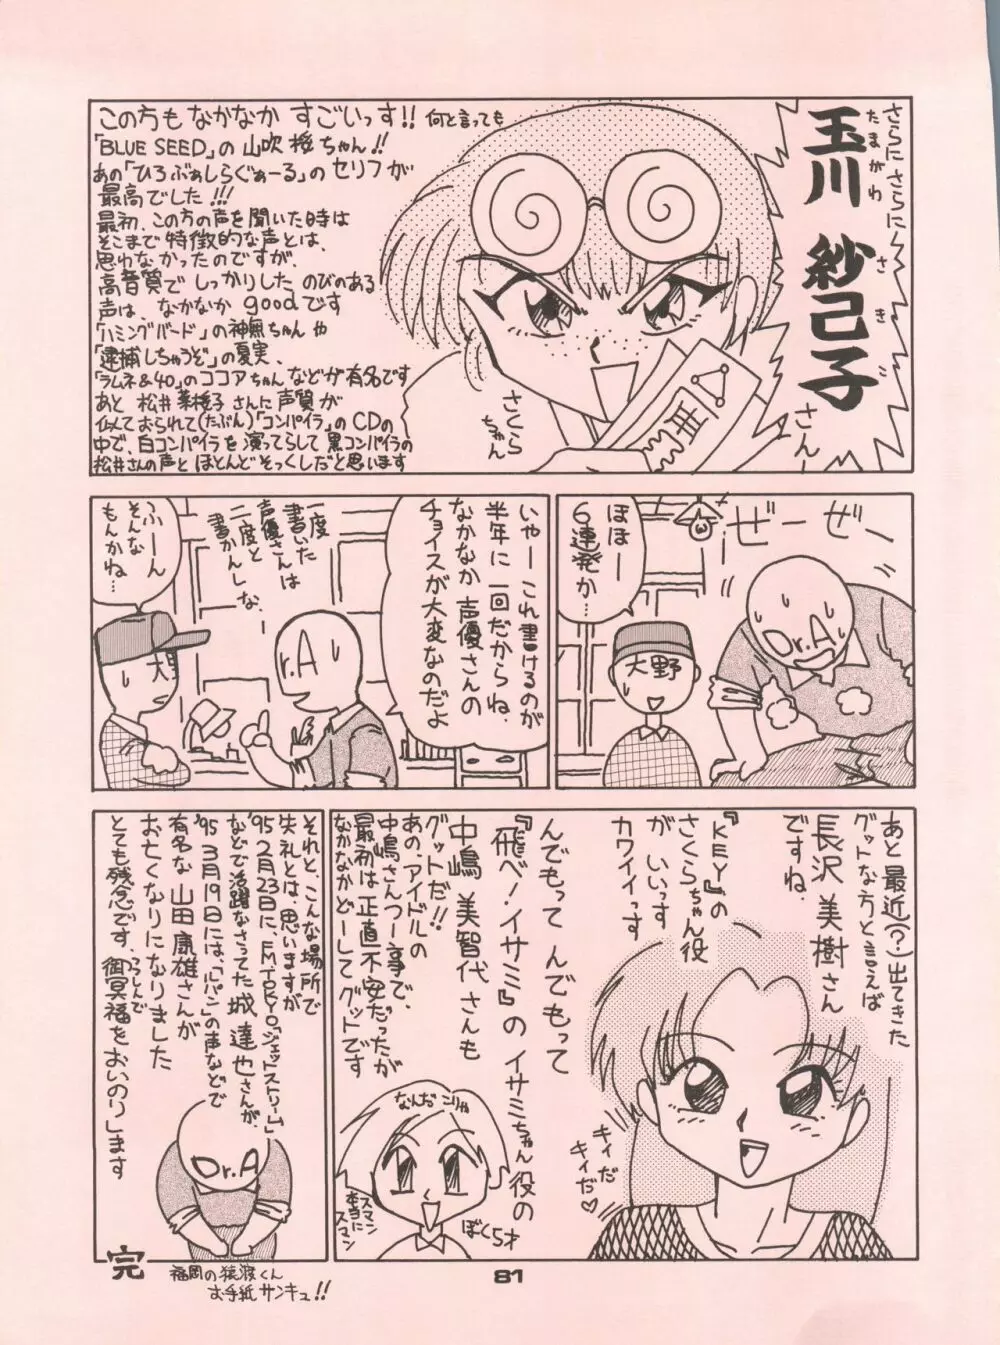 さらにさらに
玉川 紗己子
たまがわ さきこ
さんー
この方もなかなか すごいっす!! 何と言っても
「BLUE SEED」の 山吹 桜ちゃん!!
あの「ひろぶぁしらぐぁーる」のセリフが
最高でした!!!
最初、この方の声を聞いた時は
そこまで特徴的な声とは、
思わなかったのですが、
高音質で しっかりした のびのある
声は なかなか goodです
「ハミングバード」の神無ちゃん や
「逮捕しちゃうぞ」の夏実、
「ラムネ&40」のココアちゃん などが有名です
あと 松井 菜桜子 さんに声質が
似ておられて(たぶん)「コンパイラ」のCDの
中で、白コンパイラを演ってらして 黒コンパイラの
松井さんの声と ほとんどそっくしだと思います
さくら
ちゃん
ぜーぜー
ほほー
6連発か…
Dr.A
大野
いやーこれ書けるのが
半年に一回だからね、
なかなか声優さんの
チョイスが大変なのだよ
一度
書いた
声優さんは
二度と
書かんしな、
ー
Dr.A
ふーん
そんな
もんかね…
大野
あと最近(?)出てきた
グットな方と言えば
長沢 美樹さん
ですね、
『KEY』の
さくらちゃん役
が いいっす
カワイイっす
キィだ
キィだ♡
んでもって んでもって
『飛べ!イサミ』の イサミちゃん役の
中嶋 美智代さんも
グットだ!!
あの、アイドルの
中嶋さんつー事で、
最初は正直、不安だったが
なかなかどーしてグットです
なんだ こりゃ
スマン
本当に
スマン
ぼくら才
それと、こんな場所で
失礼とは、思いますが
'95 2月23日に、F.M.TOKYO「ジェットストリーム」
などで活躍なさってた城 達也さんが、
'95 3月19日には、「ルパン」の声などで
有名な 山田 康雄さんが
お亡くなりになりました
とても残念です、つつしんで
御冥福をおいのりします
Dr.A
完
福岡の猿渡くん
お手紙サンキュ!!
81